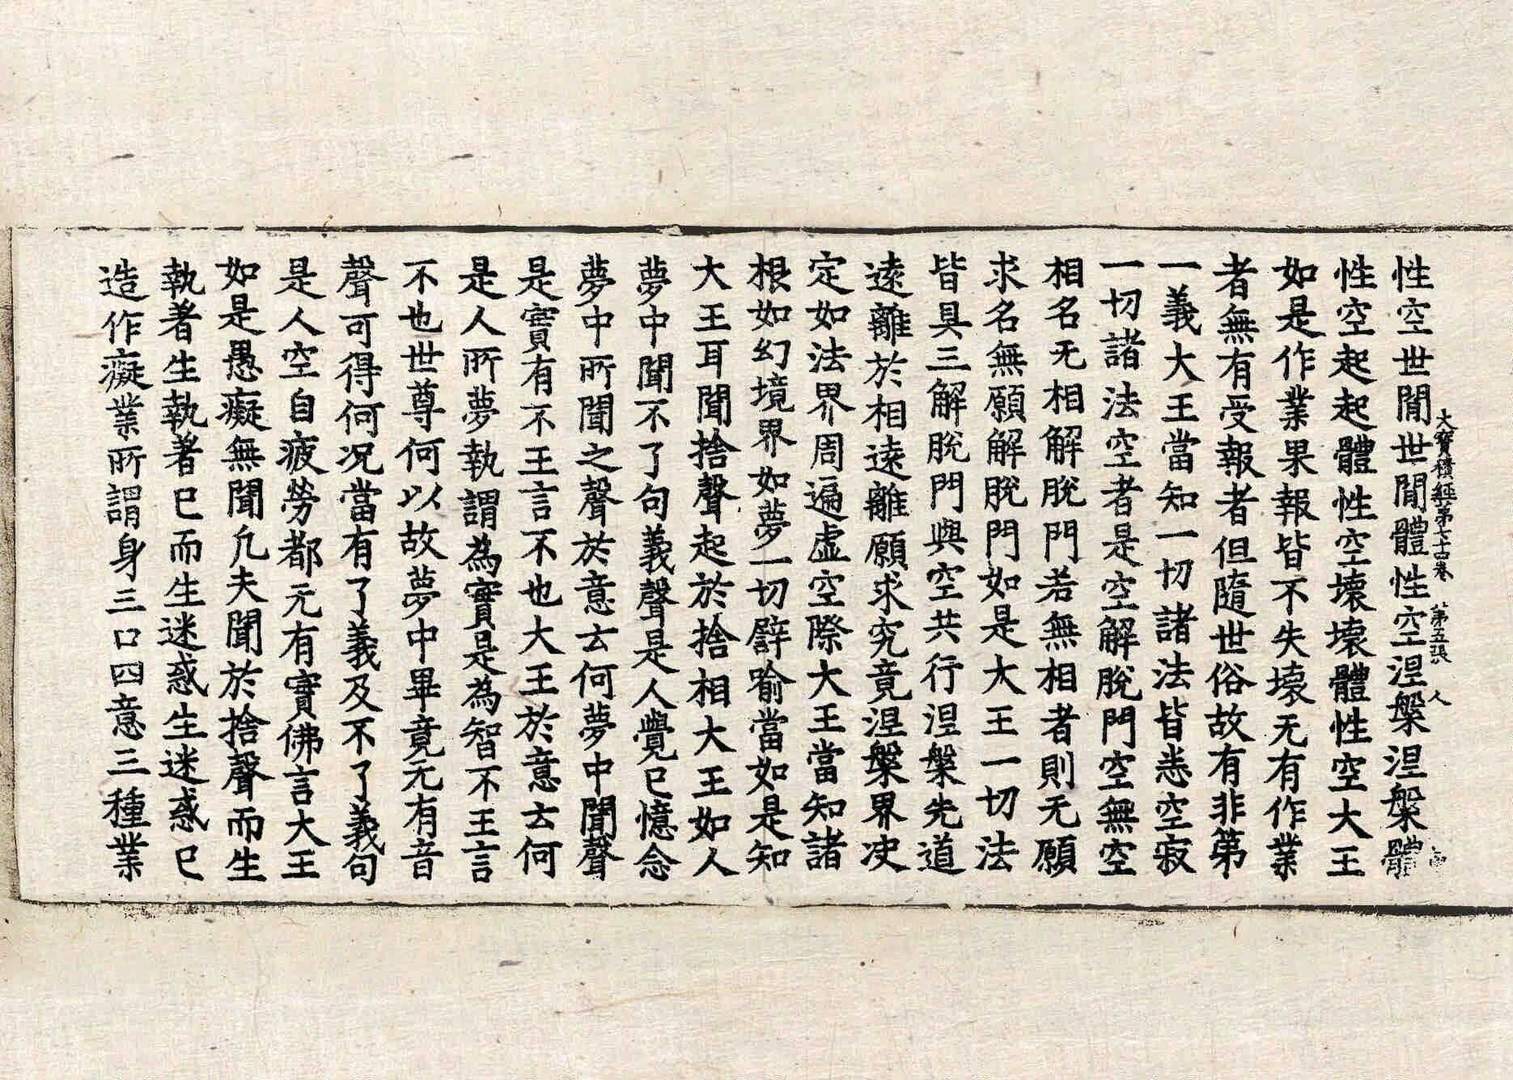 大寶積經第七十四卷　第五張　人
性空世閒世閒體性空涅槃涅槃體
性空起起體性空壞壞體性空大王
如是作業果報皆不失壞无有作業
者無有受報者但隨世俗故有非第
一義大王當知一切諸法皆悉空寂
一切諸法空者是空解脫門空無空
相名无相解脫門若無相者則无願
求名無願解脫門如是大王一切法
皆具三解脫門與空共行涅槃先道
遠離於相遠離願求究竟涅槃界决
定如法界周遍虛空際大王當知諸
根如幻境界如夢一切譬喻當如是知
大王耳聞捨聲起於捨相大王如人
夢中聞不了句義聲是人覺已憶念
夢中所聞之聲於意云何夢中聞聲
是實有不王言不也大王於意云何
是人所夢執謂為實是為智不王言
不也世尊何以故夢中畢竟无有音
聲可得何況當有了義及不了義句
是人空自疲勞都无有實佛言大王
如是愚癡無聞凡夫聞於捨聲而生
執著生執著已而生迷惑生迷惑已
造作癡業所謂身三口四意三種業